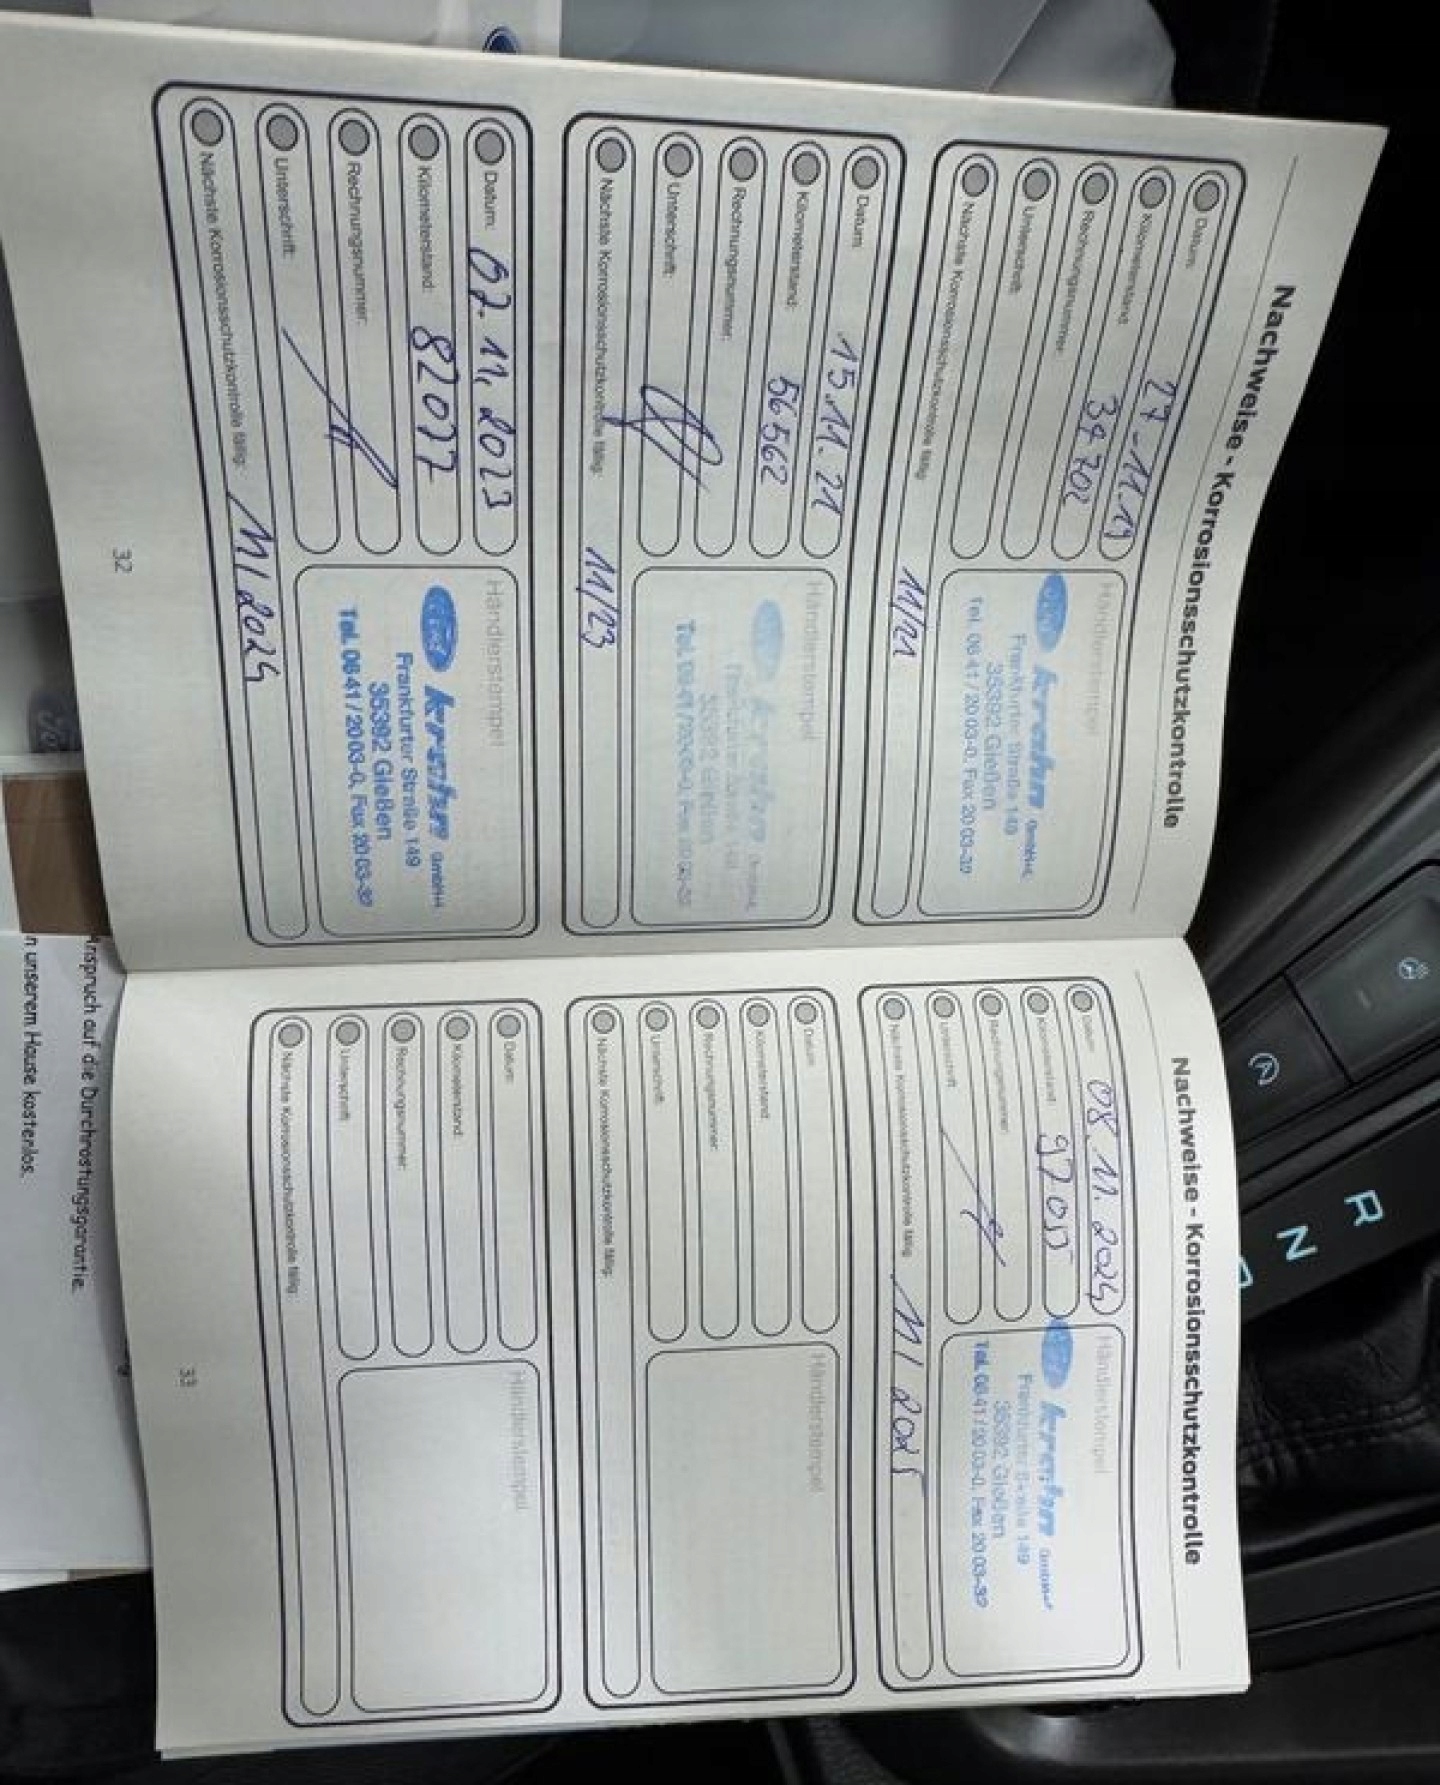 Nachweise - Korrosionsschutzkontrolle
Datum: 27.11.19
Kilometerstand: 39702
Rechnungsnummer:
Unterschrift:
Nächste Korrosionsschutzkontrolle fällig: 11/21
Händlerstempel
Ford krahn GmbH
Frankfurter Straße 149
35392 Gießen
Tel. 06 41 / 20 03-0, Fax 20 03-39
Datum: 15.11.21
Kilometerstand: 56562
Rechnungsnummer:
Unterschrift:
Nächste Korrosionsschutzkontrolle fällig: 11/23
Händlerstempel
krahn
Frankfurter Straße 149
35392 Gießen
Tel. 06 41 / 20 03-0, Fax 20 03-39
Datum: 07.11.2023
Kilometerstand: 82077
Rechnungsnummer:
Unterschrift:
Nächste Korrosionsschutzkontrolle fällig: 11/2024
Händlerstempel
Ford krahn GmbH
Frankfurter Straße 149
35392 Gießen
Tel. 06 41 / 20 03-0, Fax 20 03-39
32
Nachweise - Korrosionsschutzkontrolle
Datum: 08.11.2024
Kilometerstand: 97055
Rechnungsnummer:
Unterschrift:
Nächste Korrosionsschutzkontrolle fällig: 11/2025
Händlerstempel
krahn GmbH
Frankfurter Straße 149
35392 Gießen
Tel. 06 41 / 20 03-0, Fax 20 03-39
Datum:
Kilometerstand:
Rechnungsnummer:
Unterschrift:
Nächste Korrosionsschutzkontrolle fällig:
Händlerstempel
Datum:
Kilometerstand:
Rechnungsnummer:
Unterschrift:
Nächste Korrosionsschutzkontrolle fällig:
Händlerstempel
33
Anspruch auf die Durchrostungsgarantie.
n unserem Hause kostenlos.
R
N
A